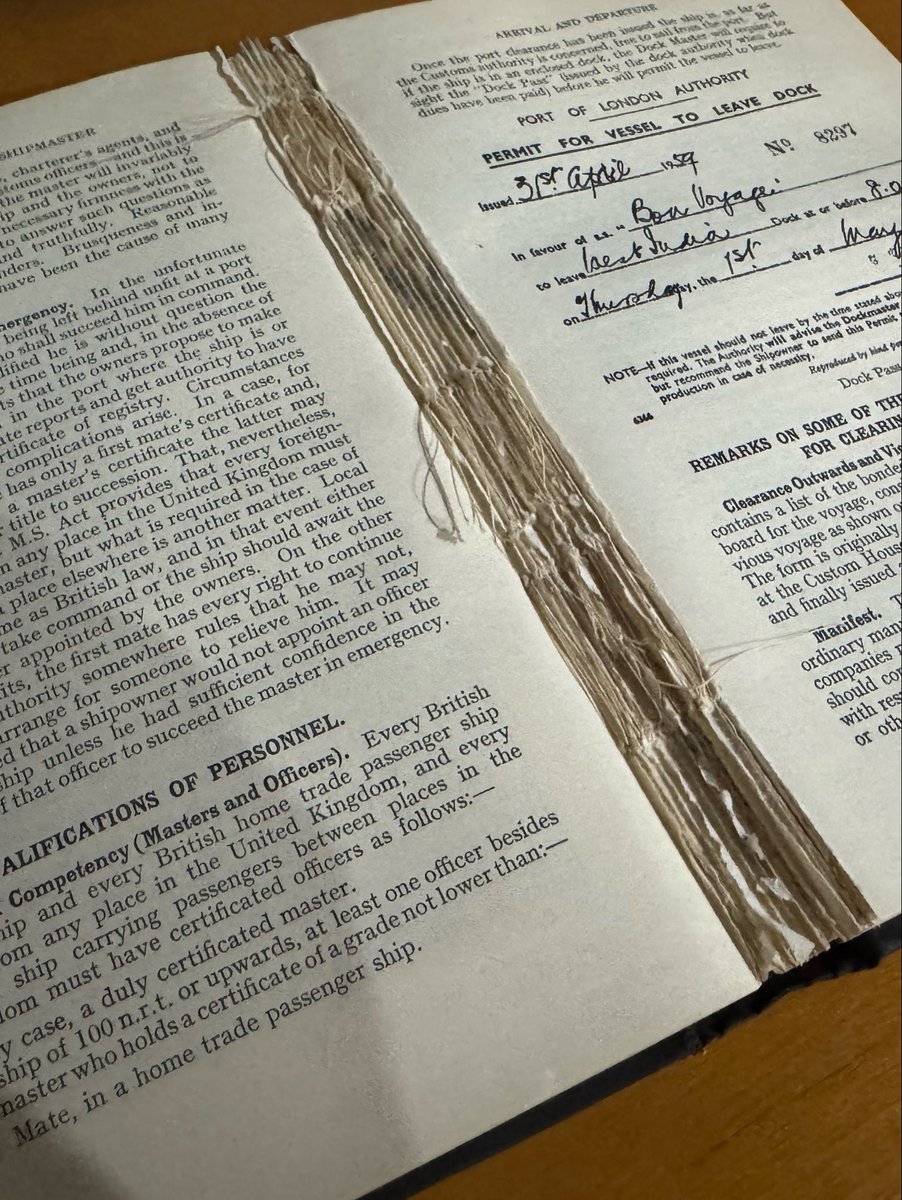 SHIPMASTER
charterer's agents, and
customs officers—and this is
the master will invariably
and the owners, not to
necessary firmness with the
to answer such questions as
and truthfully. Reasonable
Brusqueness and in-
have been the cause of many
In the unfortunate
being left behind unfit at a port
who shall succeed him in command.
he is without question the
time being and, in the absence of
that the owners propose to make
in the port where the ship is or
reports and get authority to have
certificate of registry. Circumstances
complications arise. In a case, for
has only a first mate's certificate and,
a master's certificate the latter may
title to succession. That, nevertheless,
M.S. Act provides that every foreign-
any place in the United Kingdom must
but what is required in the case of
place elsewhere is another matter. Local
as British law, and in that event either
take command or the ship should await the
appointed by the owners. On the other
the first mate has every right to continue
authority somewhere rules that he may not,
arrange for someone to relieve him. It may
that a shipowner would not appoint an officer
ship unless he had sufficient confidence in the
of that officer to succeed the master in emergency.
ALIFICATIONS OF PERSONNEL.
Competency (Masters and Officers). Every British
and every British home trade passenger ship
any place in the United Kingdom, and every
ship carrying passengers between places in the
must have certificated officers as follows:—
case, a duly certificated master.
ship of 100 n.r.t. or upwards, at least one officer besides
master who holds a certificate of a grade not lower than:—
Mate, in a home trade passenger ship.
ARRIVAL AND DEPARTURE
Once the port clearance has been issued the ship is, as far as
the Customs authority is concerned, free to sail from the port. But
if the ship is in an enclosed dock, the Dock Master will require to
sight the "Dock Pass" (issued by the dock authority when dock
dues have been paid) before he will permit the vessel to leave.
PORT OF LONDON AUTHORITY
PERMIT FOR VESSEL TO LEAVE DOCK
Issued 31st April 1957 No 8297
In favour of s.s. "Bon Voyage"
to leave West India Dock at or before 8.0
on Thursday, the 1st day of May
NOTE—If this vessel should not leave by the time stated
required. The Authority will advise the Dockmaster
but recommend the Shipowner to send this Permit,
production in case of necessity.
Reproduced by kind
Dock Pass
REMARKS ON SOME OF THE
FOR CLEARIN
Clearance Outwards and Vi
contains a list of the bonde
board for the voyage, cons
vious voyage as shown o
The form is originally
at the Custom Hous
and finally issued
Manifest.
ordinary man
companies
should co
with res
or oth